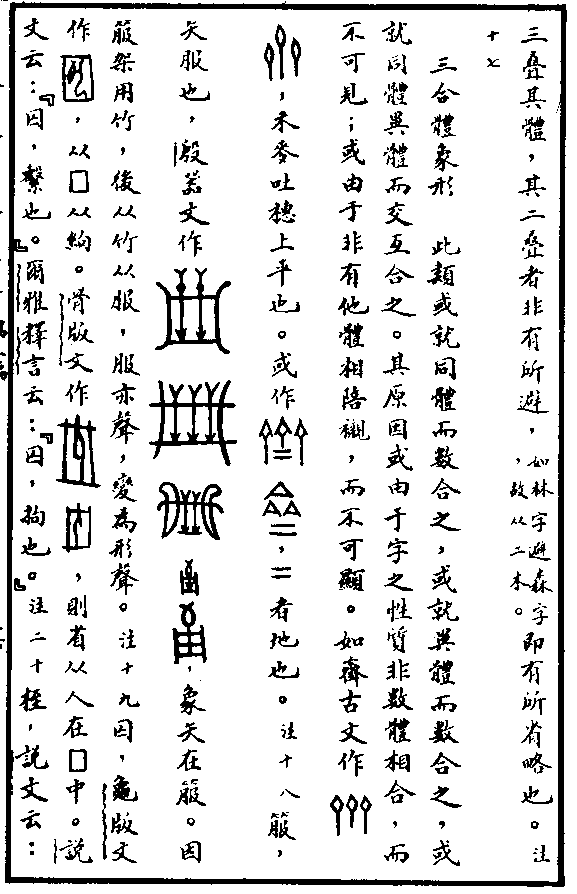 三疊其體,其二疊者非有所避,如林字避森字,故从二木。即有所省略也。注
十七
三合體象形 此類或就同體而數合之,或就異體而數合之,或
就同體異體而交互合之。其原因或由于字之性質非數體相合,而
不可見;或由于非有他體相陪襯,而不可顯。如齊古文作
,禾麥吐穗上平也。或作,二者地也。注十八 箙,
矢服也,殷器文作,象矢在箙。因
箙架用竹,後从竹从服,服亦聲,變為形聲。注十九 囚,龜版文
作,从囗从絇。骨版文作,則省从人在囗中。説
文云:『囚,繫也。』爾雅釋言云:『囚,拘也。』注二十 桎,説文云: